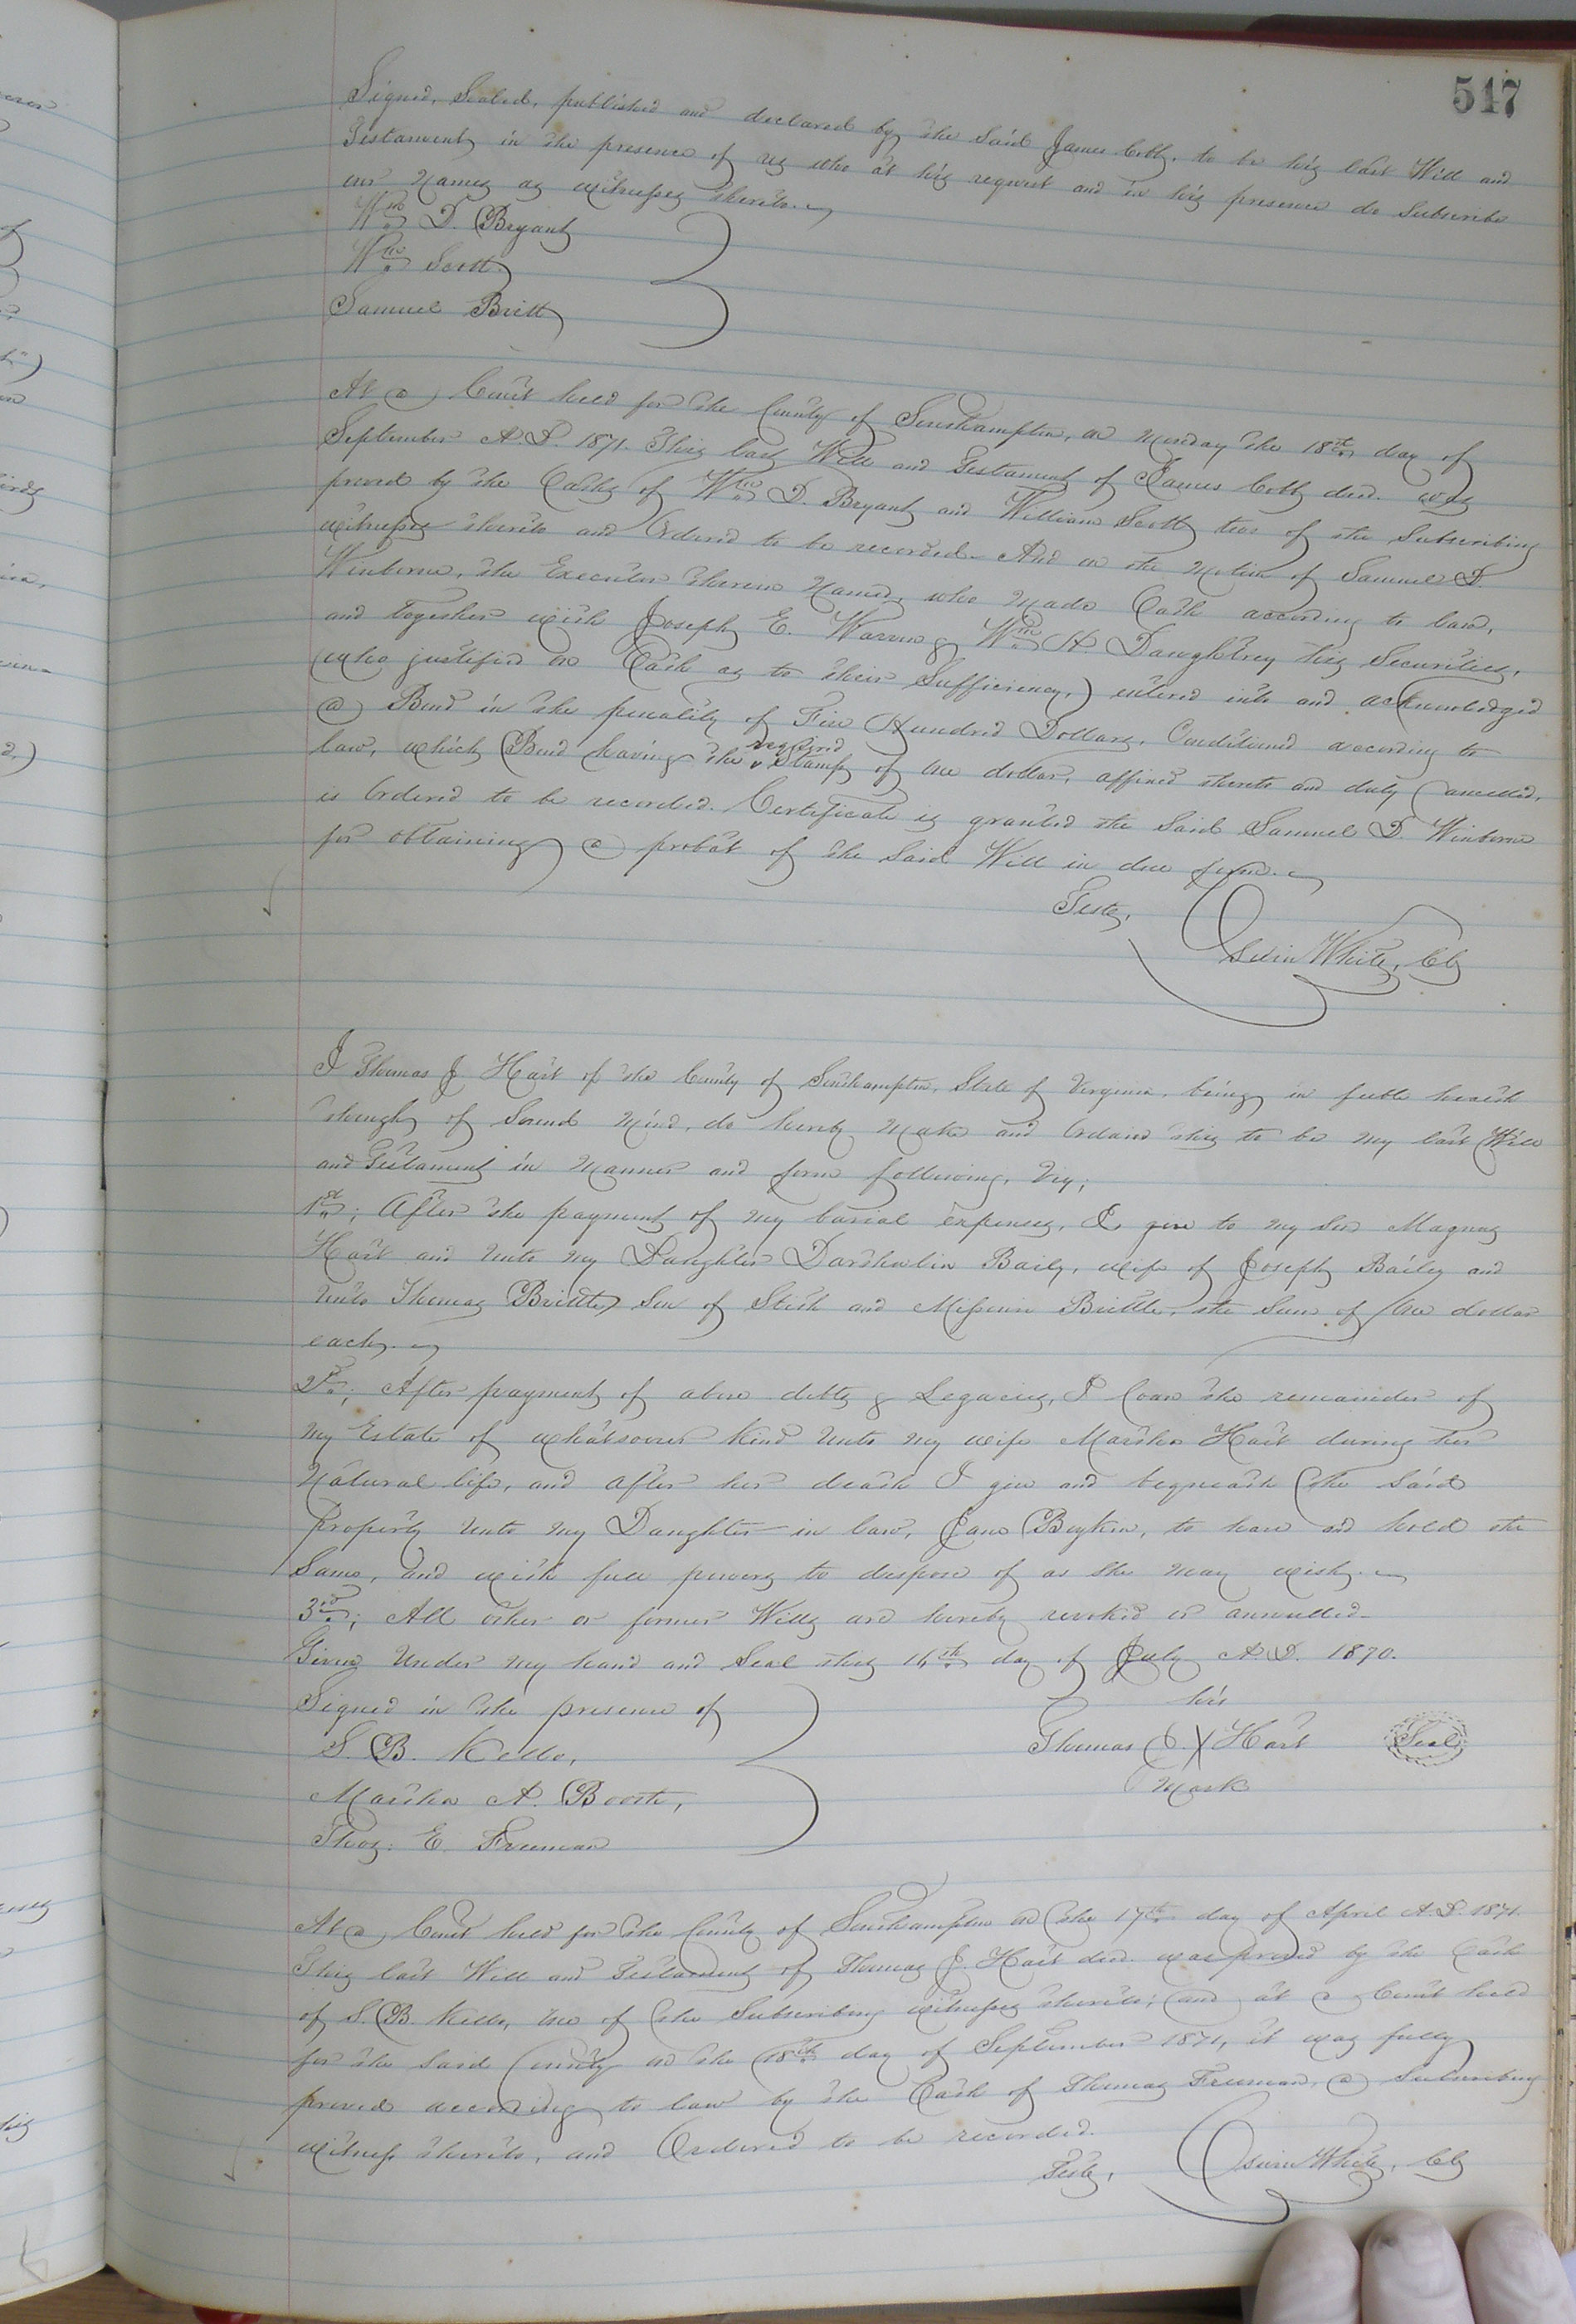 517
Signed, Sealed, published and declared by the said James Cobb, to be his last Will and
Testament, in the presence of us who at his request and in his presence do subscribe
our names as witnesses thereto.
Wm. D. Bryant
Wm. Scott
Samuel Britt
At a Court held for the County of Southampton, on Monday the 18th day of
September A.D. 1871. This last Will and Testament of James Cobb decd. was
proved by the Oaths of Wm. D. Bryant and William Scott two of the subscribing
witnesses thereto and Ordered to be recorded. And on the motion of Samuel D.
Winborne, the Executor therein named, who made Oath according to law,
and together with Joseph E. Warren & Wm. H. Daughtrey his Securities,
(who justified on Oath as to their Sufficiency,) entered into and acknowledged
a Bond in the penality of Five Hundred Dollars, Conditioned according to
law, which Bond having the required Stamp of one dollar, affixed thereto and duly Cancelled,
is Ordered to be recorded. Certificate is granted the said Samuel D. Winborne
for obtaining a probat of the said Will in due form.
Teste,
White, Clk
I Thomas J. Hart of the County of Southampton, State of Virginia, being in feeble health
though of sound mind, do hereby make and Ordain this to be my last Will
and Testament in manner and form following, Viz;
1st; After the payment of my burial expenses, I give to my son Magnus
Hart and unto my Daughter Baily, wife of Joseph Bailey and
unto Thomas Brittle, son of Stith and Missouri Brittle, the sum of One dollar
each.
2d; After payment of above debts & Legacies, I loan the remainder of
my Estate of whatsoever kind unto my wife Martha Hart during her
natural life, and after her death I give and bequeath the said
Property unto my Daughter-in law, Jane Boykin, to have and hold the
same, and with full powers to dispose of as she may wish.
3rd; All other or former Wills are hereby revoked or annulled.
Given Under my hand and Seal this 14th day of July A.D. 1870.
Signed in the presence of
S. B. Kello,
Martha A. Booth,
Thos. E. Freeman
his
Thomas J. X Hart Seal
mark
At a Court held for the County of Southampton on the 17th day of April A.D. 1871.
This last Will and Testament of Thomas J. Hart decd. was proved by the Oath
of S. B. Kello, one of the Subscribing witnesses thereto; and at a Court held
for the said County on the 18th day of September 1871, it was fully
proved according to law by the Oath of Thomas Freeman, a Subscribing
witness thereto, and Ordered to be recorded.
Teste,
White, Clk